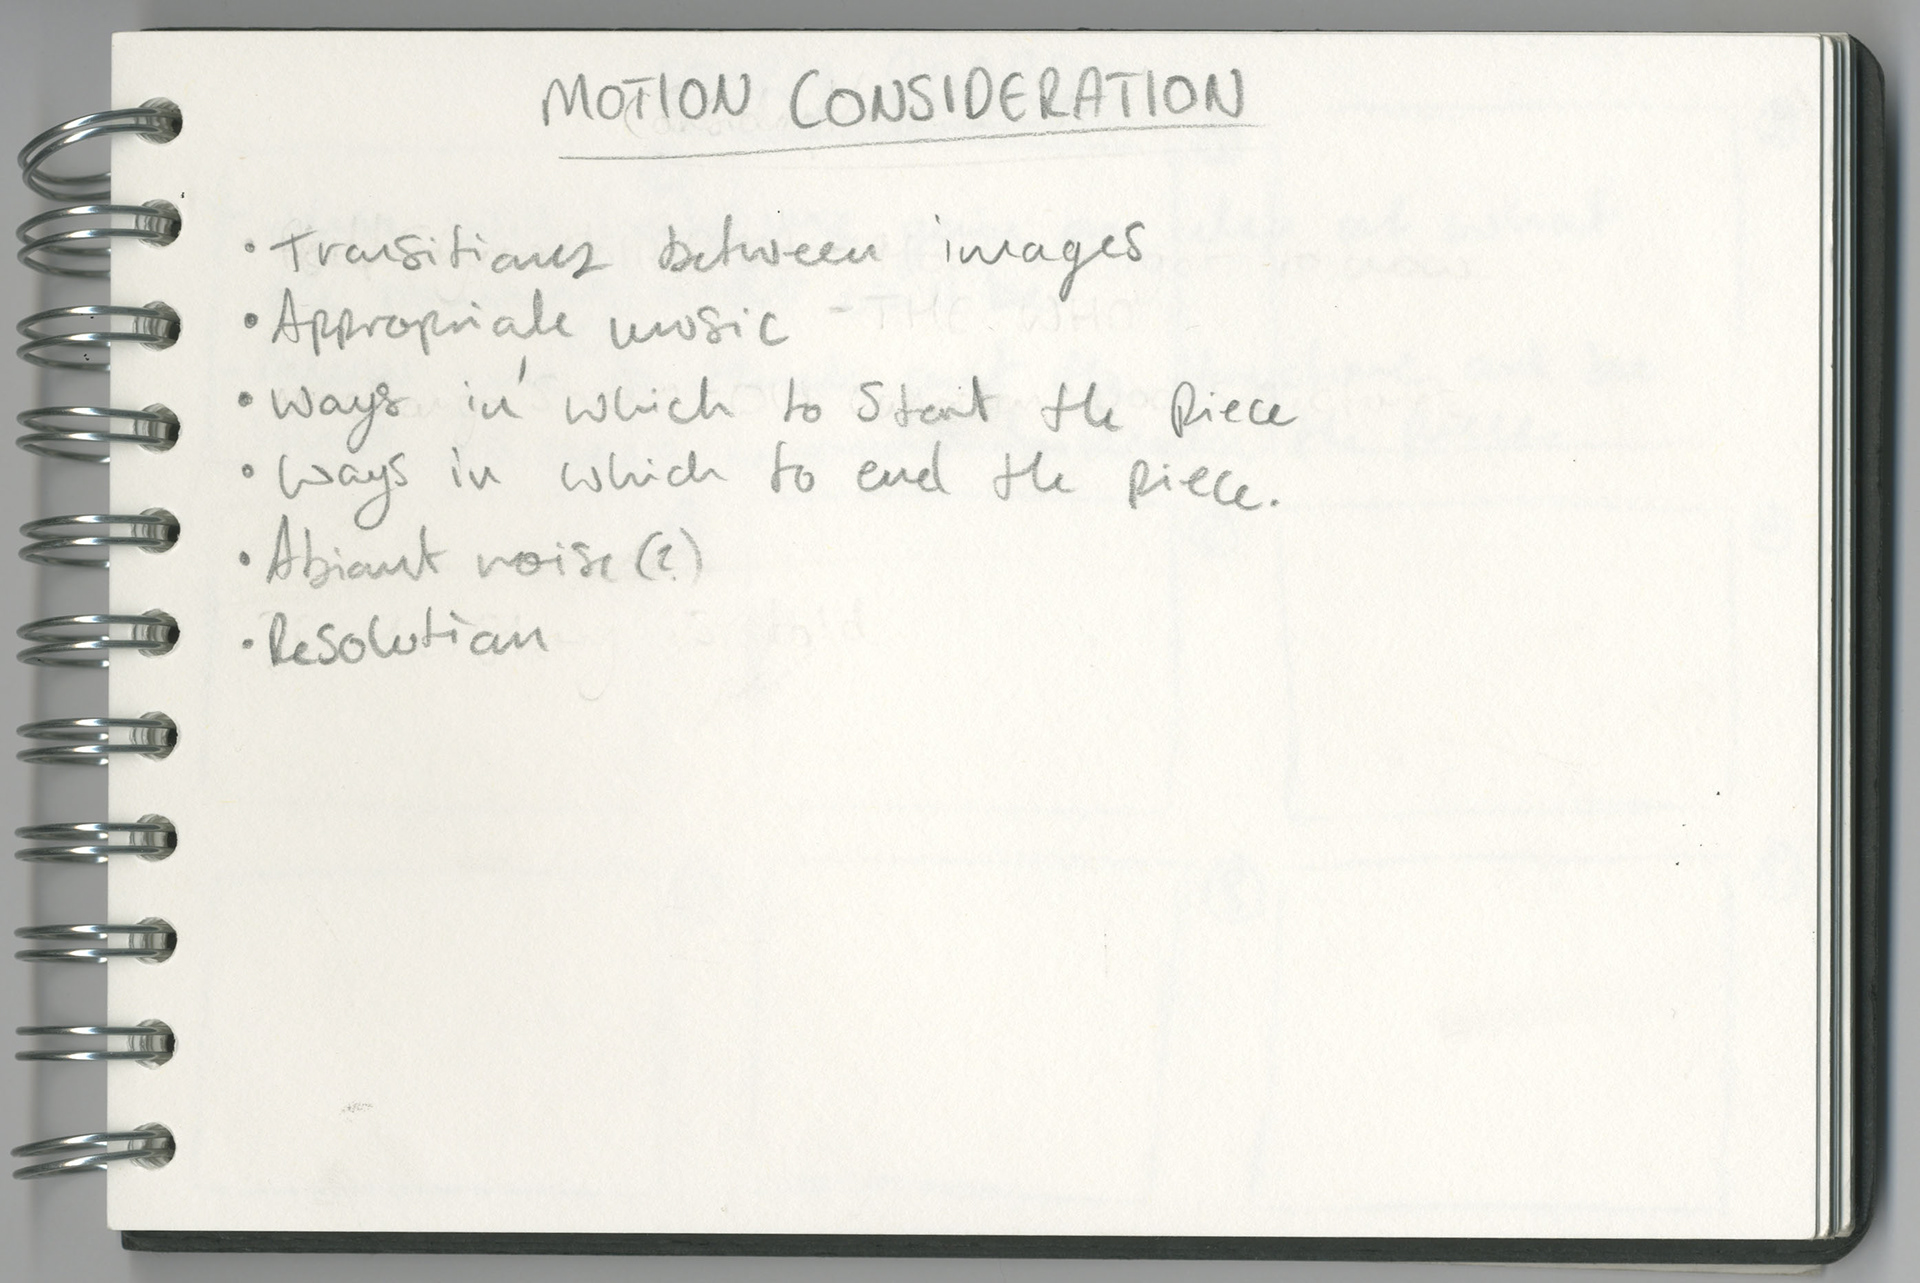 MOTION CONSIDERATION
• Transitions between images
• Appropriate music - THE WHO
• Ways in which to start the piece
• Ways in which to end the piece.
• Abiant noise (?)
• Resolution